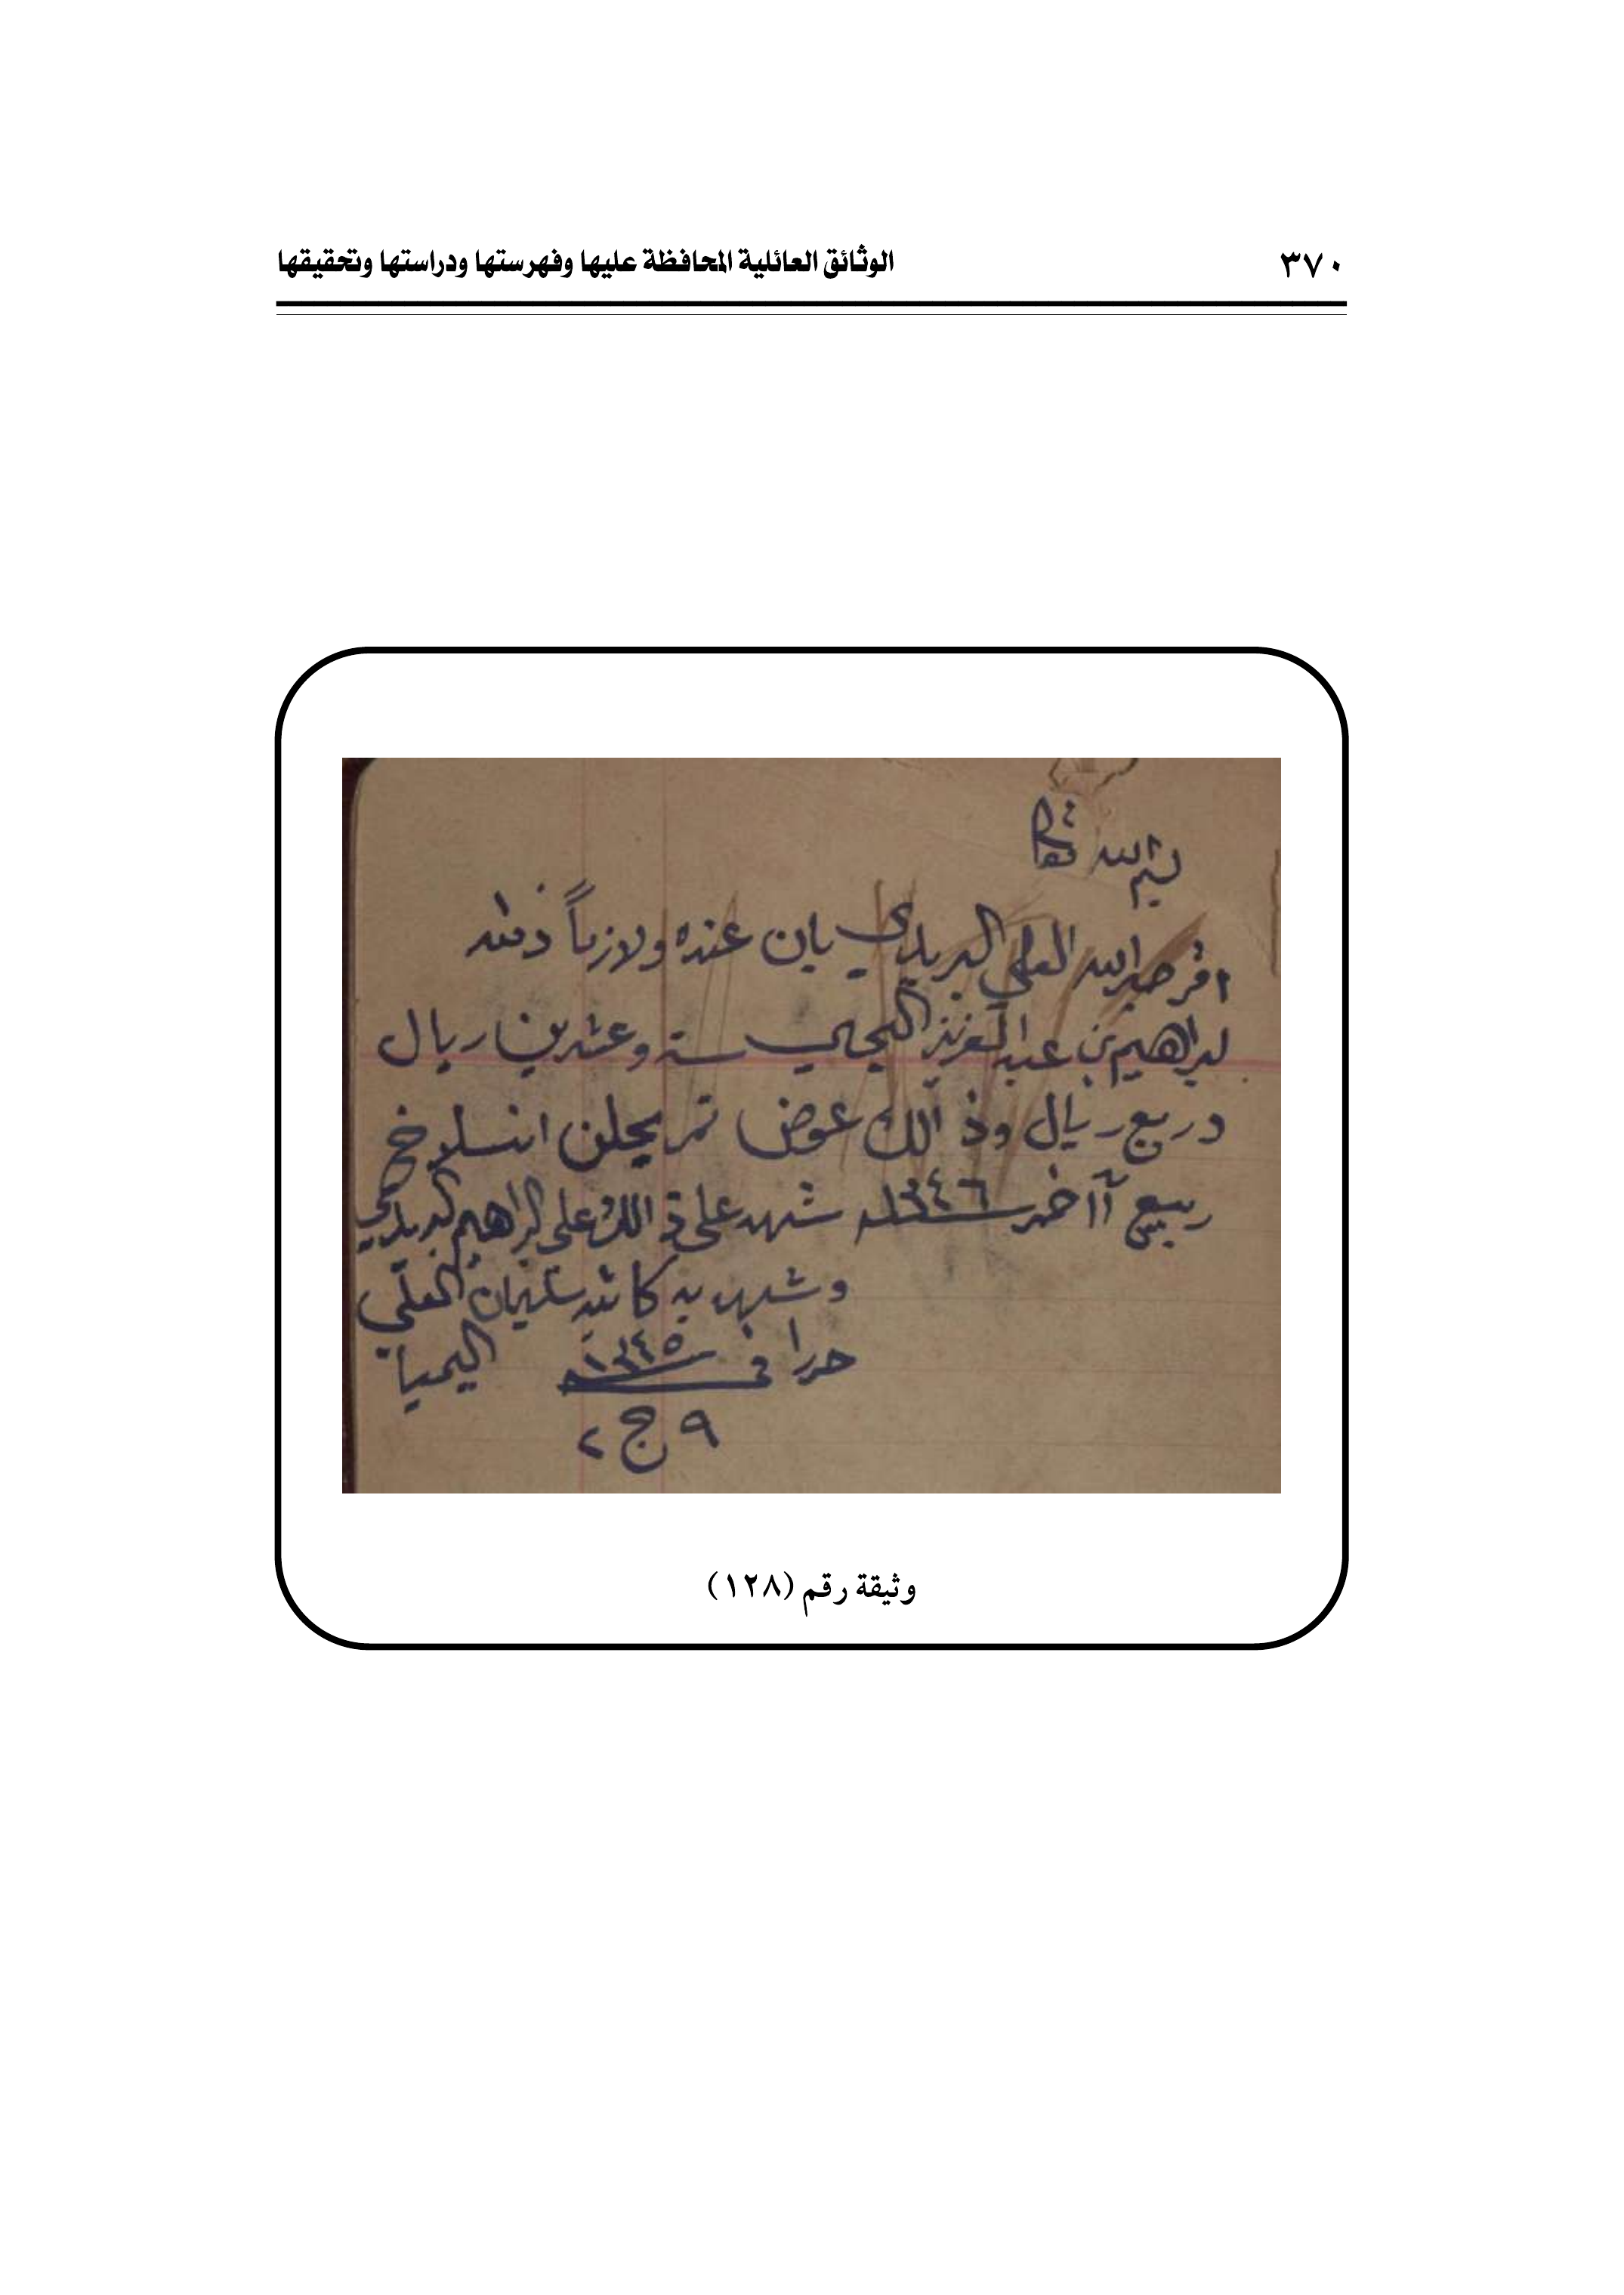 ٣٧٠
الوثائق العائلية المحافظة عليها وفهرستها ودراستها وتحقيقها
بسم الله
اقر عبدالله العلي البريدي بان عنده ولازماً ذمته
لبراهيم بن عبد العزيز اليحيى ستة وعشرين ريال
وربع ريال وذالك عوض تمر يحلن انسلاخ
ربيع آاخر ١٣٤٦ شهد على ذالك علي البراهيم البريدي
وشهد به كاتبه سليمان العلي
حرر في ١٣٤٥
٩ ج ٢
وثيقة رقم (١٢٨)